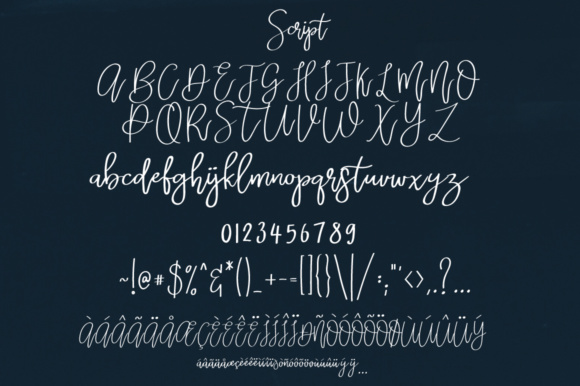 Script
ABCDEFGHIJKLMNO
PQRSTUVWXYZ
abcdefghijklmnopqrstuvwxyz
0123456789
~!@#$%^&*()_+-=[]{}\|/:;"'<>,.?...
ÀÁÂÃÄÅÆÇÈÉÊËÌÍÎÏÐÑÒÓÔÕÖØÙÚÛÜÝ